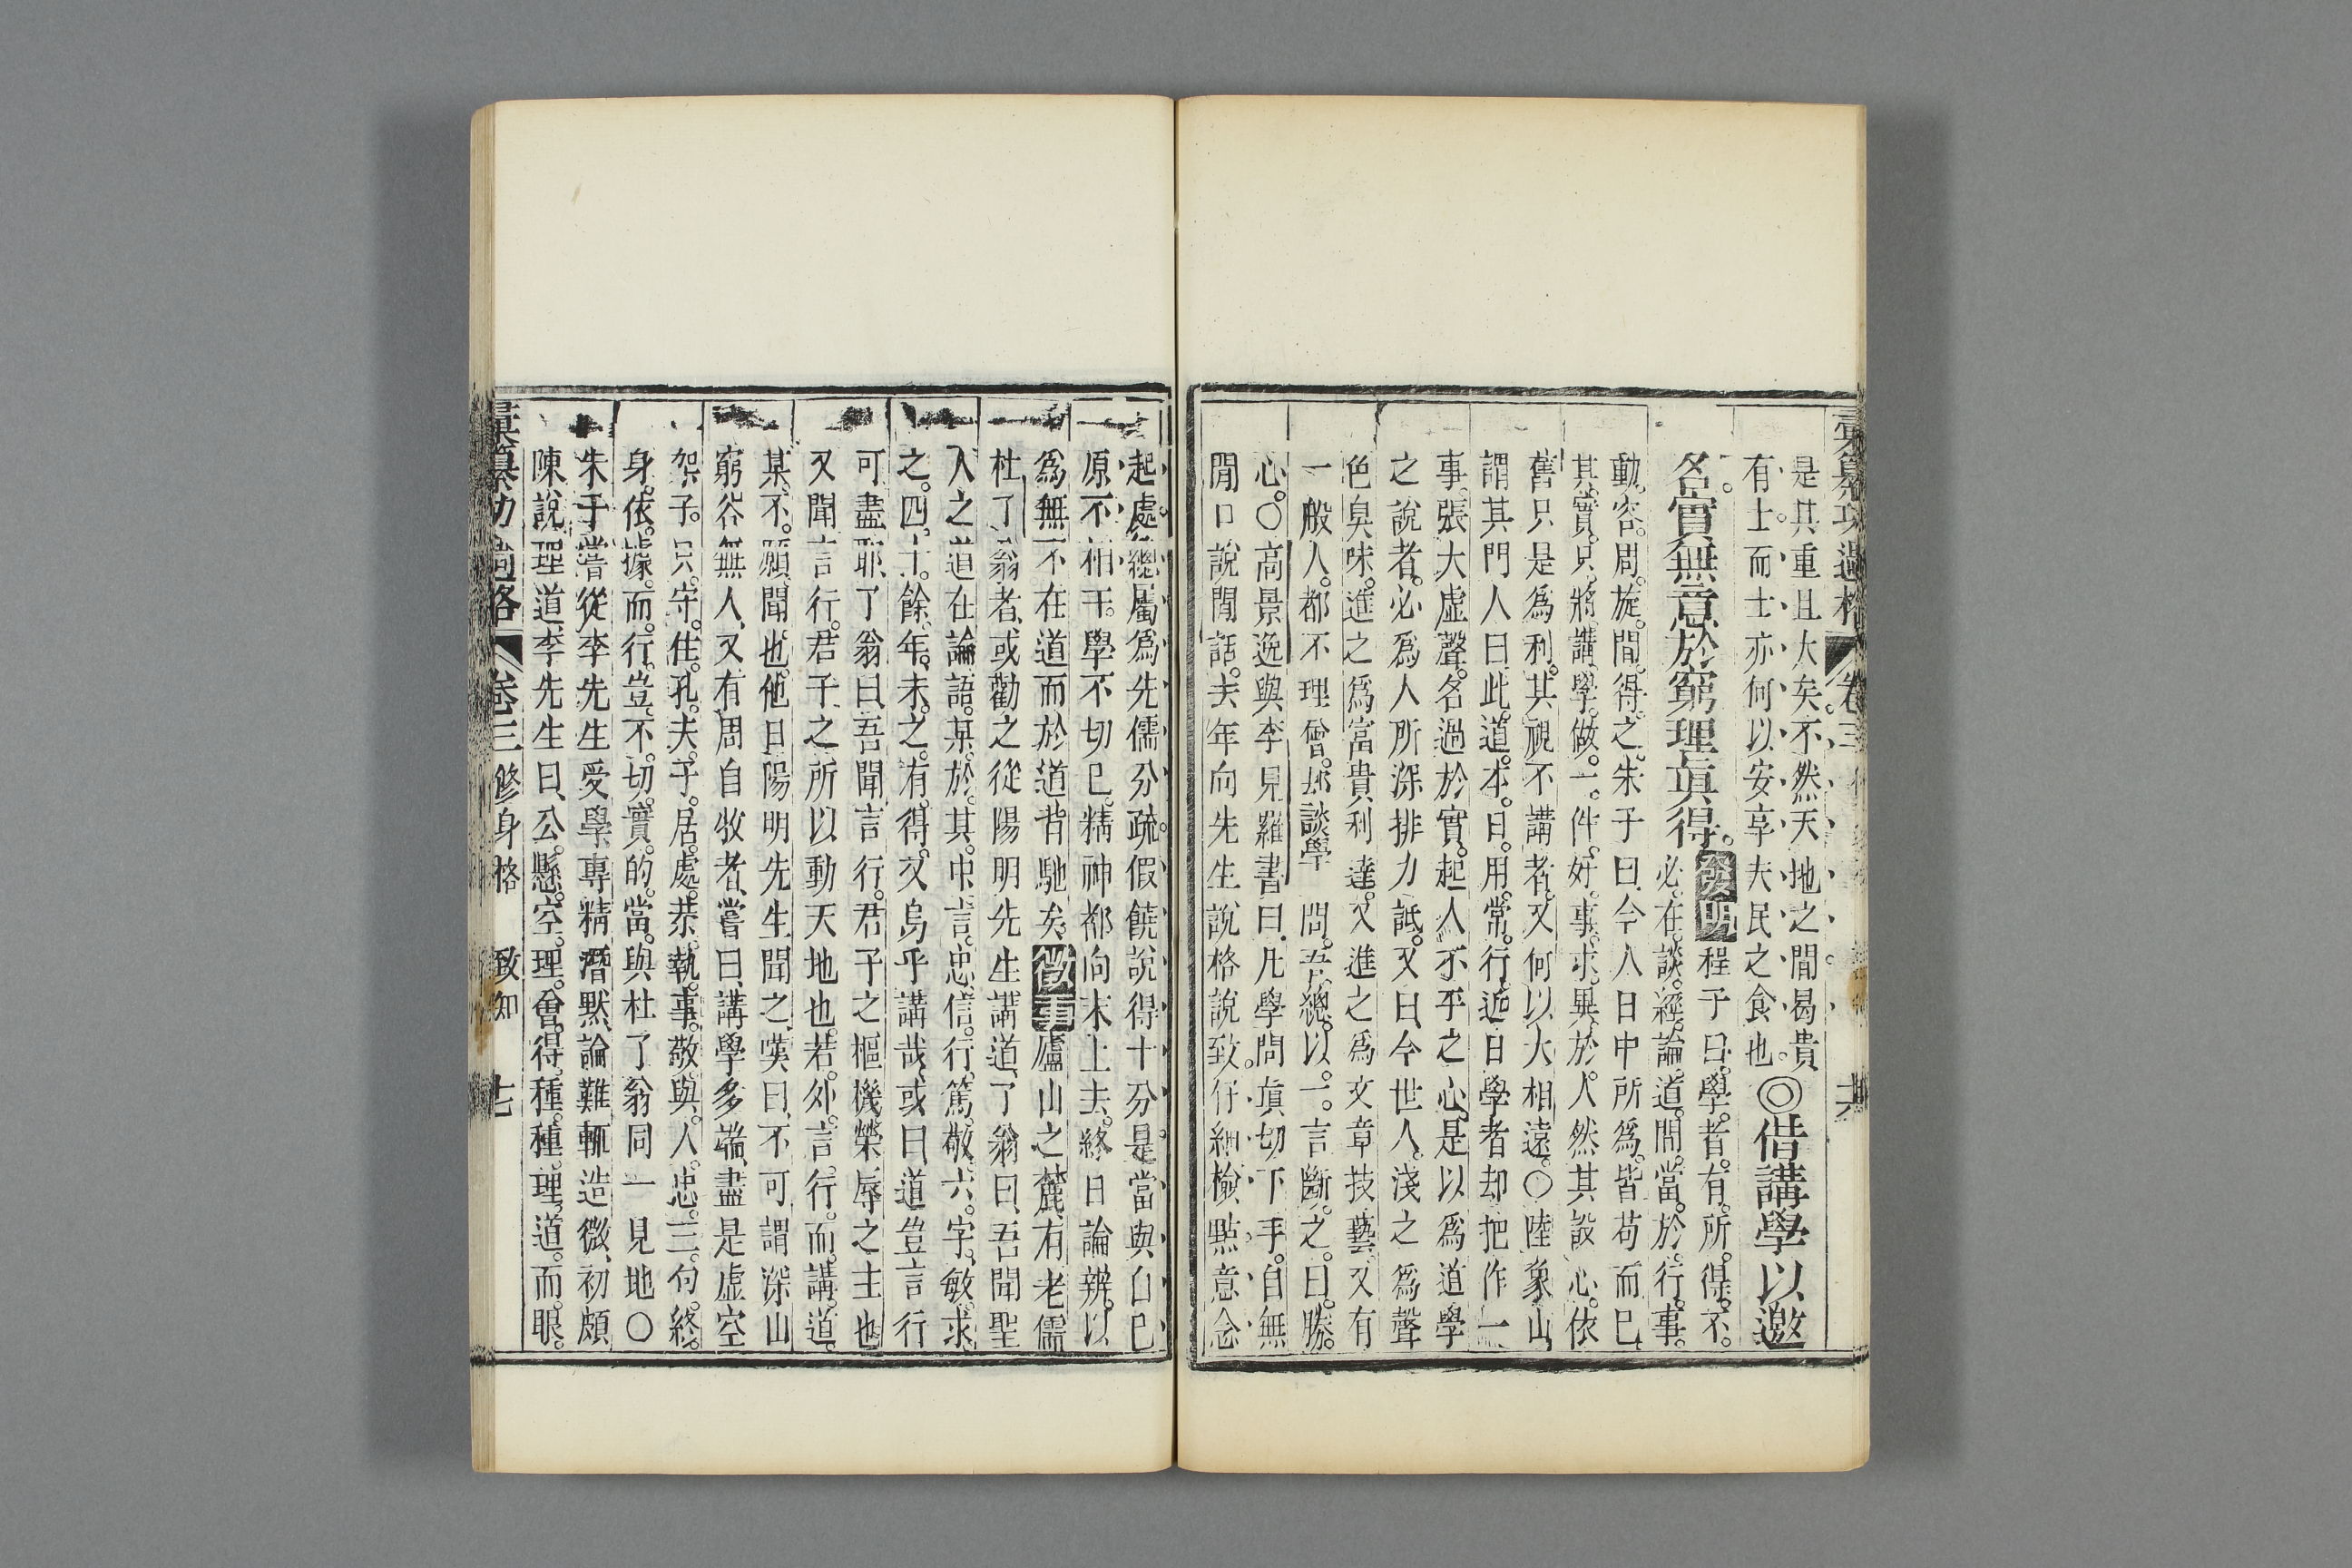 彙纂功過格 卷三
是其重且大矣。不然天地之間曷貴
有士。而士亦何以安享夫民之食也。◎借講學以邀
名。實無意於窮理眞得。發明程子曰。學者有所得。不
必在談經論道間。當於行事
動容周旋間得之。朱子曰、今人日中所爲、皆苟而已、
其實只將講學做一件好事求異於人。然其設心。依
舊只是爲利。其視不講者。又何以大相遠。○陸象山
謂其門人曰、此道本日用常行、近日學者却把作一
事。張大虛聲。名過於實。起人不平之心。是以爲道學
之說者。必爲人所深排力詆。又曰、今世人。淺之爲聲
色臭味。進之爲富貴利達。又進之爲文章技藝、又有
一般人。都不理會。却談學問。吾總以一言斷之。曰。勝
心。○高景逸與李見羅書曰、凡學問眞切下手。自無
閒口說閒話。去年向先生說格說致。仔細檢點意念
起處。總屬爲先儒分疏。假饒說得十分是。當與自己
原不相干。學不切己。精神都向末上去。終日論辨。以
爲無不在道而於道背馳矣。徵事廬山之麓、有老儒
杜了翁者、或勸之從陽明先生講道、了翁曰、吾聞聖
人之道在論語。某於其中言忠信行篤敬六字、敏求
之。四十餘年。未之有得。又烏乎講哉、或曰、道豈言行
可盡耶、了翁曰、吾聞言行。君子之樞機。榮辱之主也
又聞言行。君子之所以動天地也。若外言行而講道。
某不願聞也。他日陽明先生聞之、嘆曰、不可謂深山
窮谷無人、又有周自牧者、嘗曰、講學多端、盡是虛空
架子。只守住孔夫子。居處恭。執事敬。與人忠。三句終
身依據而行。豈不切實的當。與杜了翁同一見地○
朱子嘗從李先生受學、專精潛默、論難輒造微、初頗
陳說理道、李先生曰、公懸空理會得種種理道。而眼
彙纂功過格 卷三 修身格 致知 七